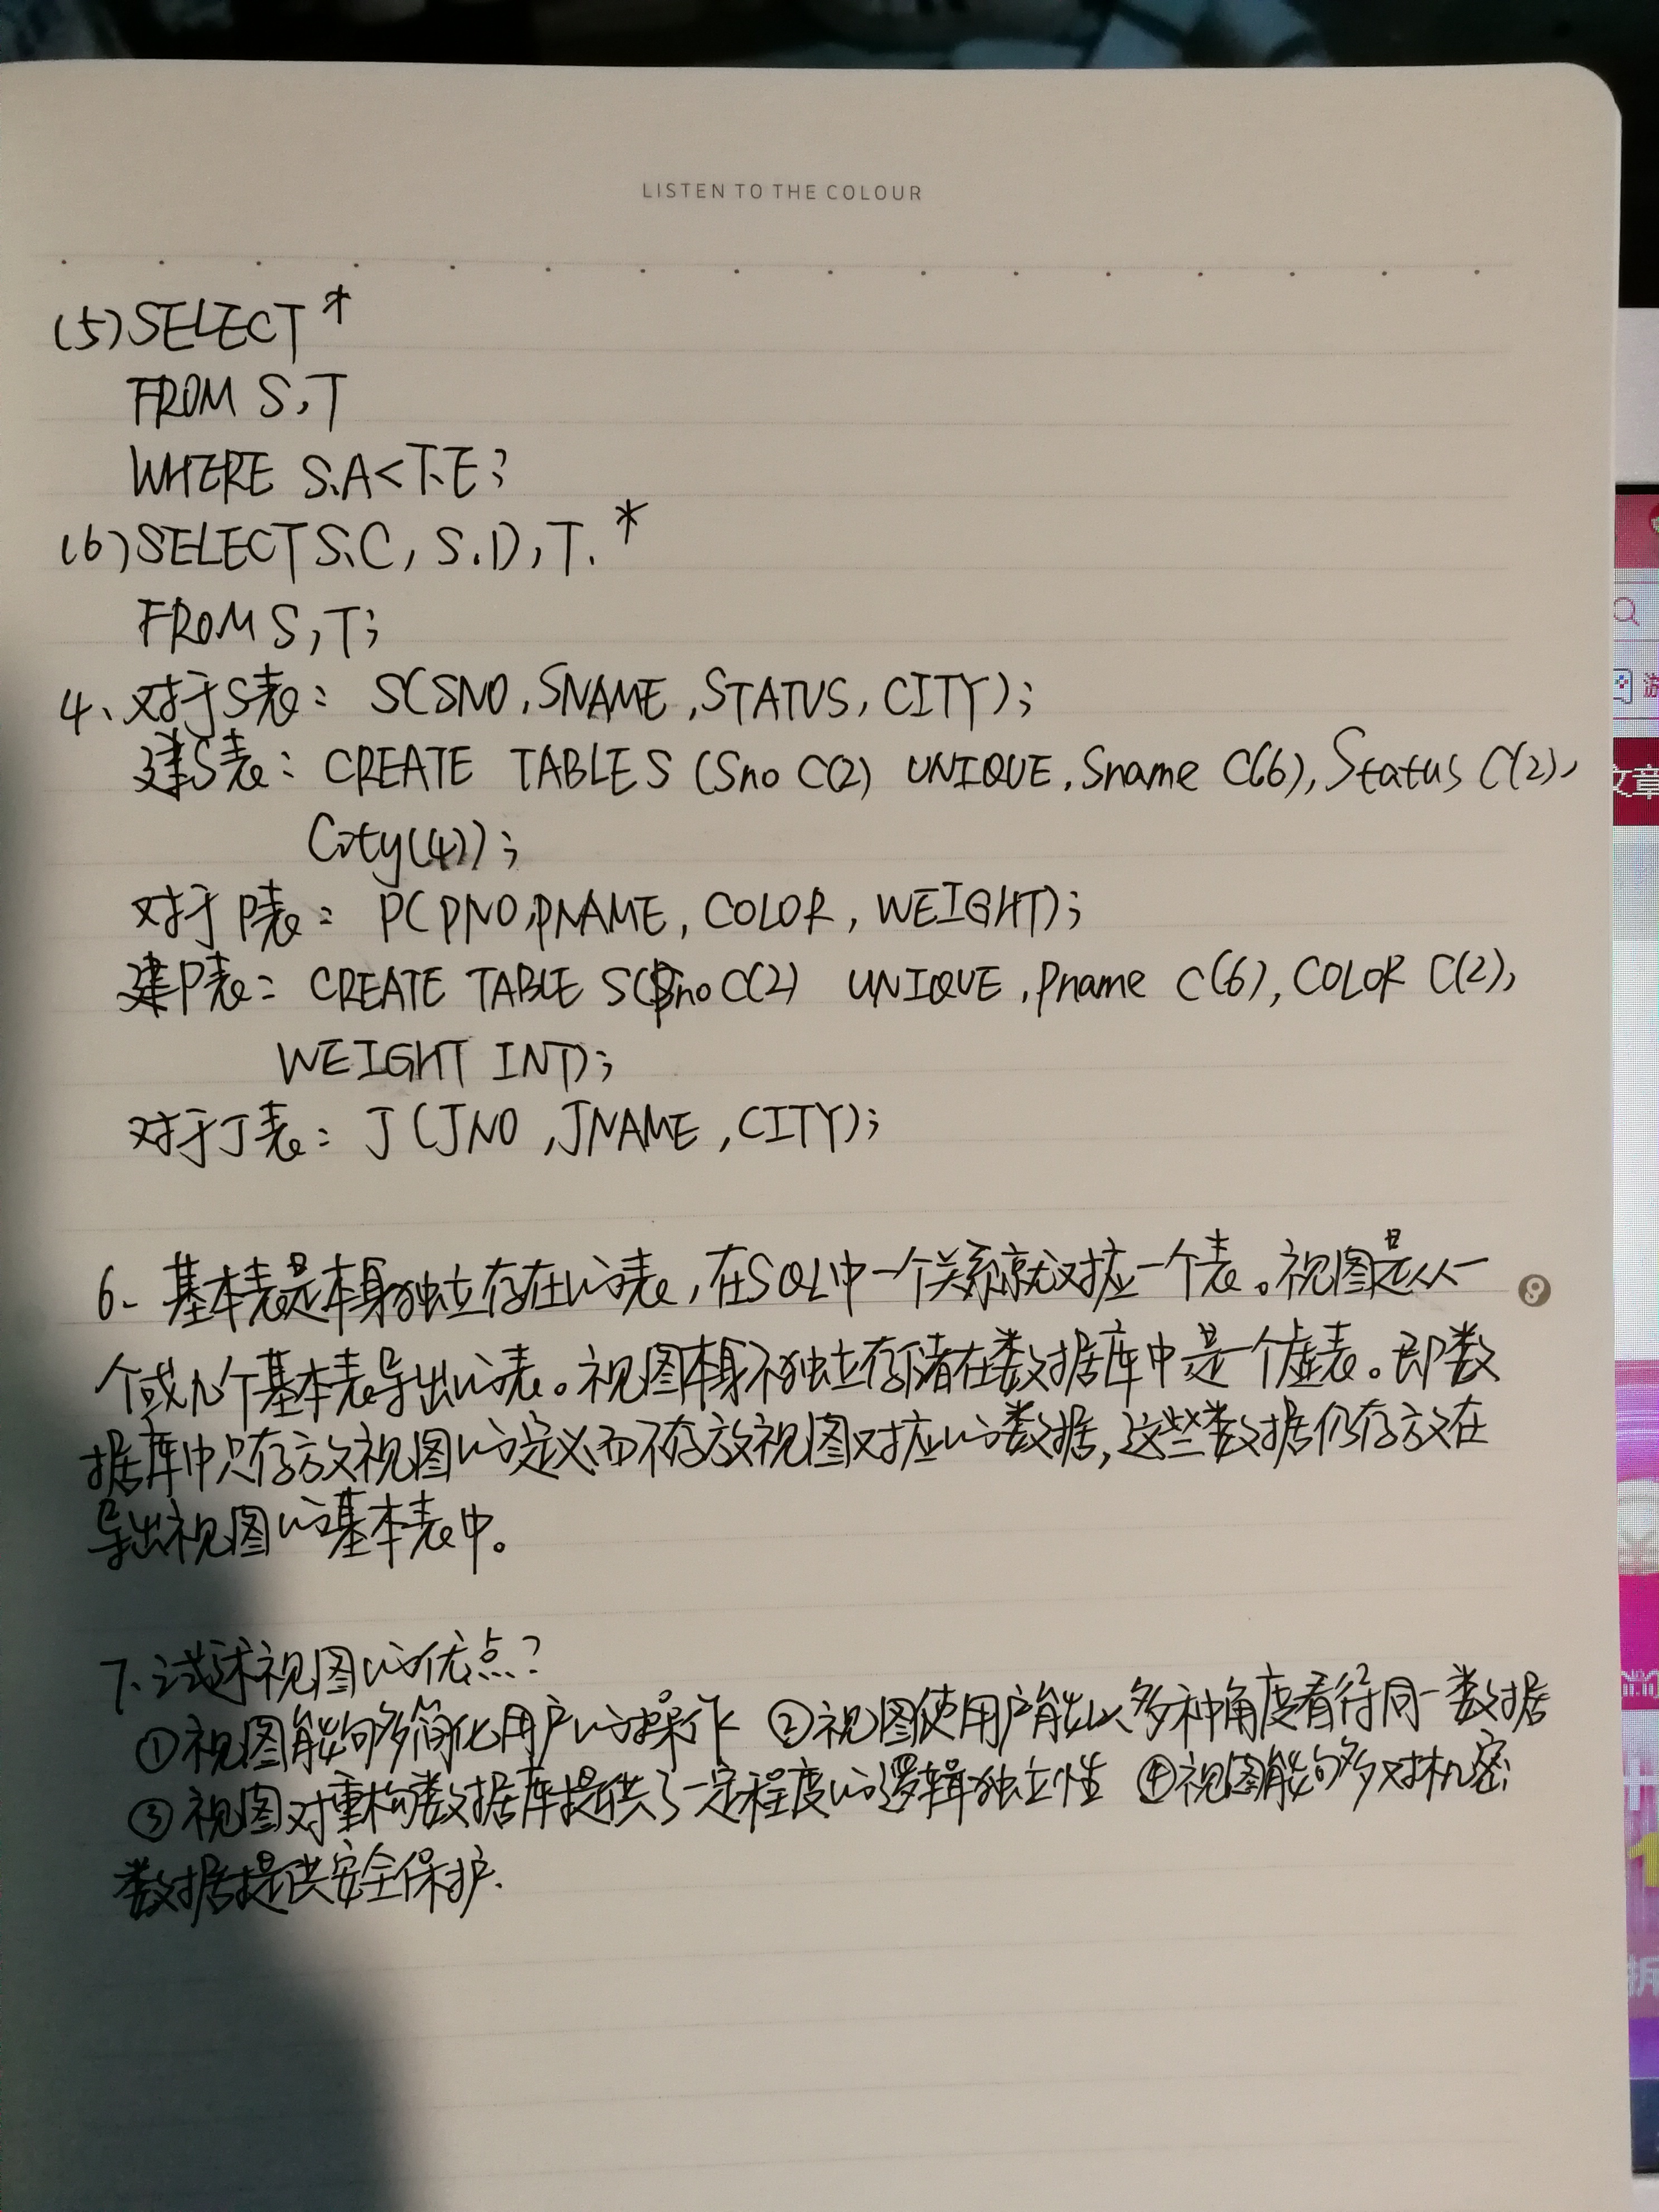 LISTEN TO THE COLOUR
(5) SELECT *
FROM S,T
WHERE S.A<T.E;
(6) SELECT S.C, S.D, T.*
FROM S,T;
4、对于S表: S(SNO,SNAME,STATUS,CITY);
建S表: CREATE TABLE S (Sno C(2) UNIQUE,Sname C(6),Status C(2),
City(4));
对于P表: P(PNO,PNAME,COLOR,WEIGHT);
建P表: CREATE TABLE S(Pno C(2) UNIQUE,Pname C(6),COLOR C(2),
WEIGHT INT);
对于J表: J(JNO,JNAME,CITY);
6、基本表是本身独立存在的表,在SQL中一个关系就对应一个表。视图是从一
个或几个基本表导出的表。视图本身不独立存储在数据库中是一个虚表。即数
据库中只存放视图的定义而不存放视图对应的数据,这些数据仍存放在
导出视图的基本表中。
7、试述视图的优点?
①视图能够简化用户的操作 ②视图使用户能以多种角度看待同一数据
③视图对重构数据库提供了一定程度的逻辑独立性 ④视图能够对机密
数据提供安全保护.
文章